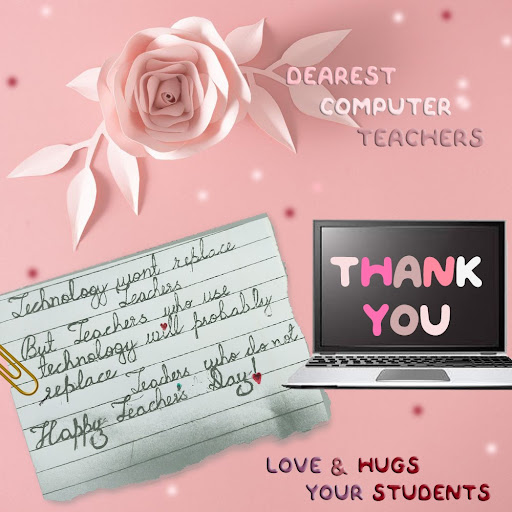 DEAREST
COMPUTER
TEACHERS
Technology wont replace
teachers
But Teachers who use
technology will probably
replace Teachers who do not
Happy Teachers Day!
THANK
YOU
LOVE & HUGS
YOUR STUDENTS